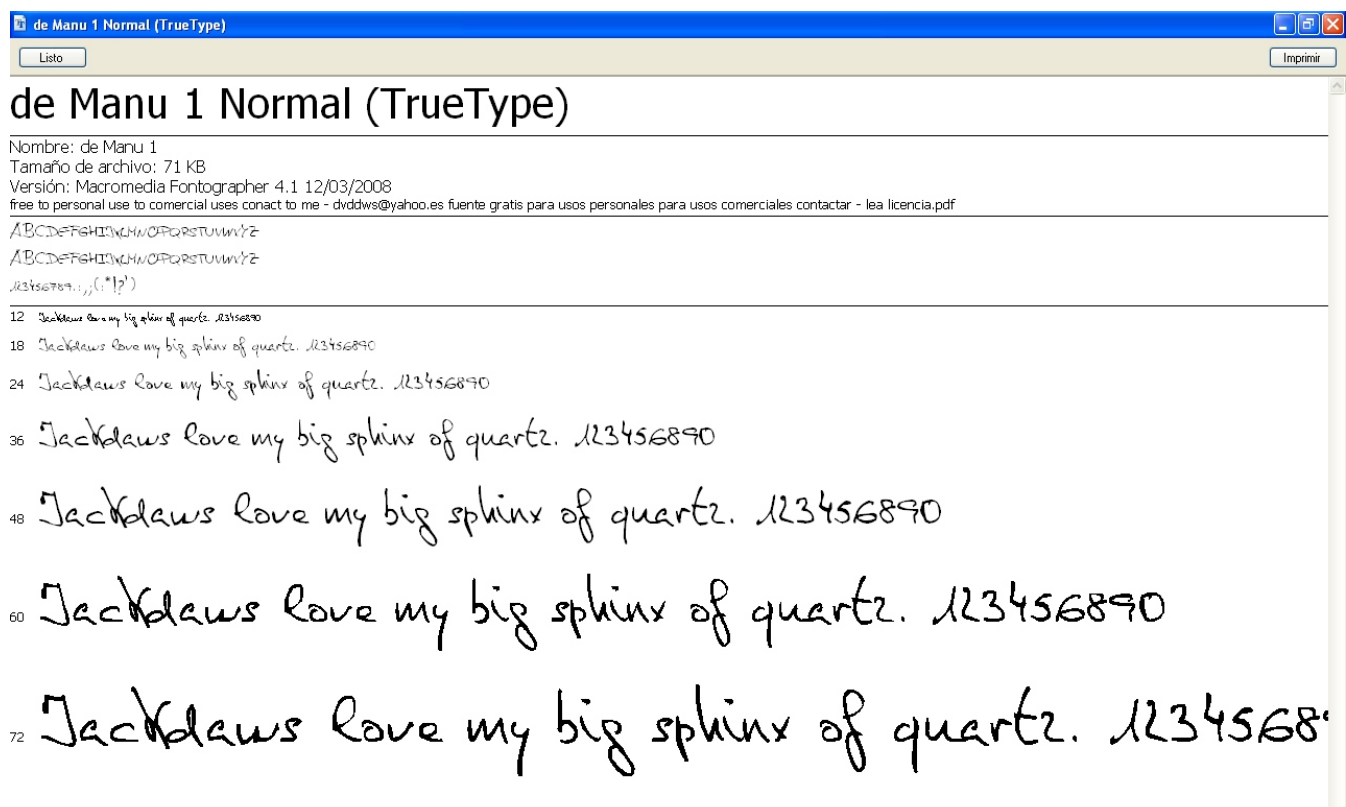 de Manu 1 Normal (TrueType)
Listo
Imprimir
de Manu 1 Normal (TrueType)
Nombre: de Manu 1
Tamaño de archivo: 71 KB
Versión: Macromedia Fontographer 4.1 12/03/2008
free to personal use to comercial uses conact to me - dvddws@yahoo.es fuente gratis para usos personales para usos comerciales contactar - lea licencia.pdf
ABCDEFGHIJKLMNOPQRSTUVWXYZ
ABCDEFGHIJKLMNOPQRSTUVWXYZ
123456789.:,;(:*!?')
12 Jackdaws love my big sphinx of quartz. 123456890
18 Jackdaws love my big sphinx of quartz. 123456890
24 Jackdaws love my big sphinx of quartz. 123456890
36 Jackdaws love my big sphinx of quartz. 123456890
48 Jackdaws love my big sphinx of quartz. 123456890
60 Jackdaws love my big sphinx of quartz. 123456890
72 Jackdaws love my big sphinx of quartz. 1234568